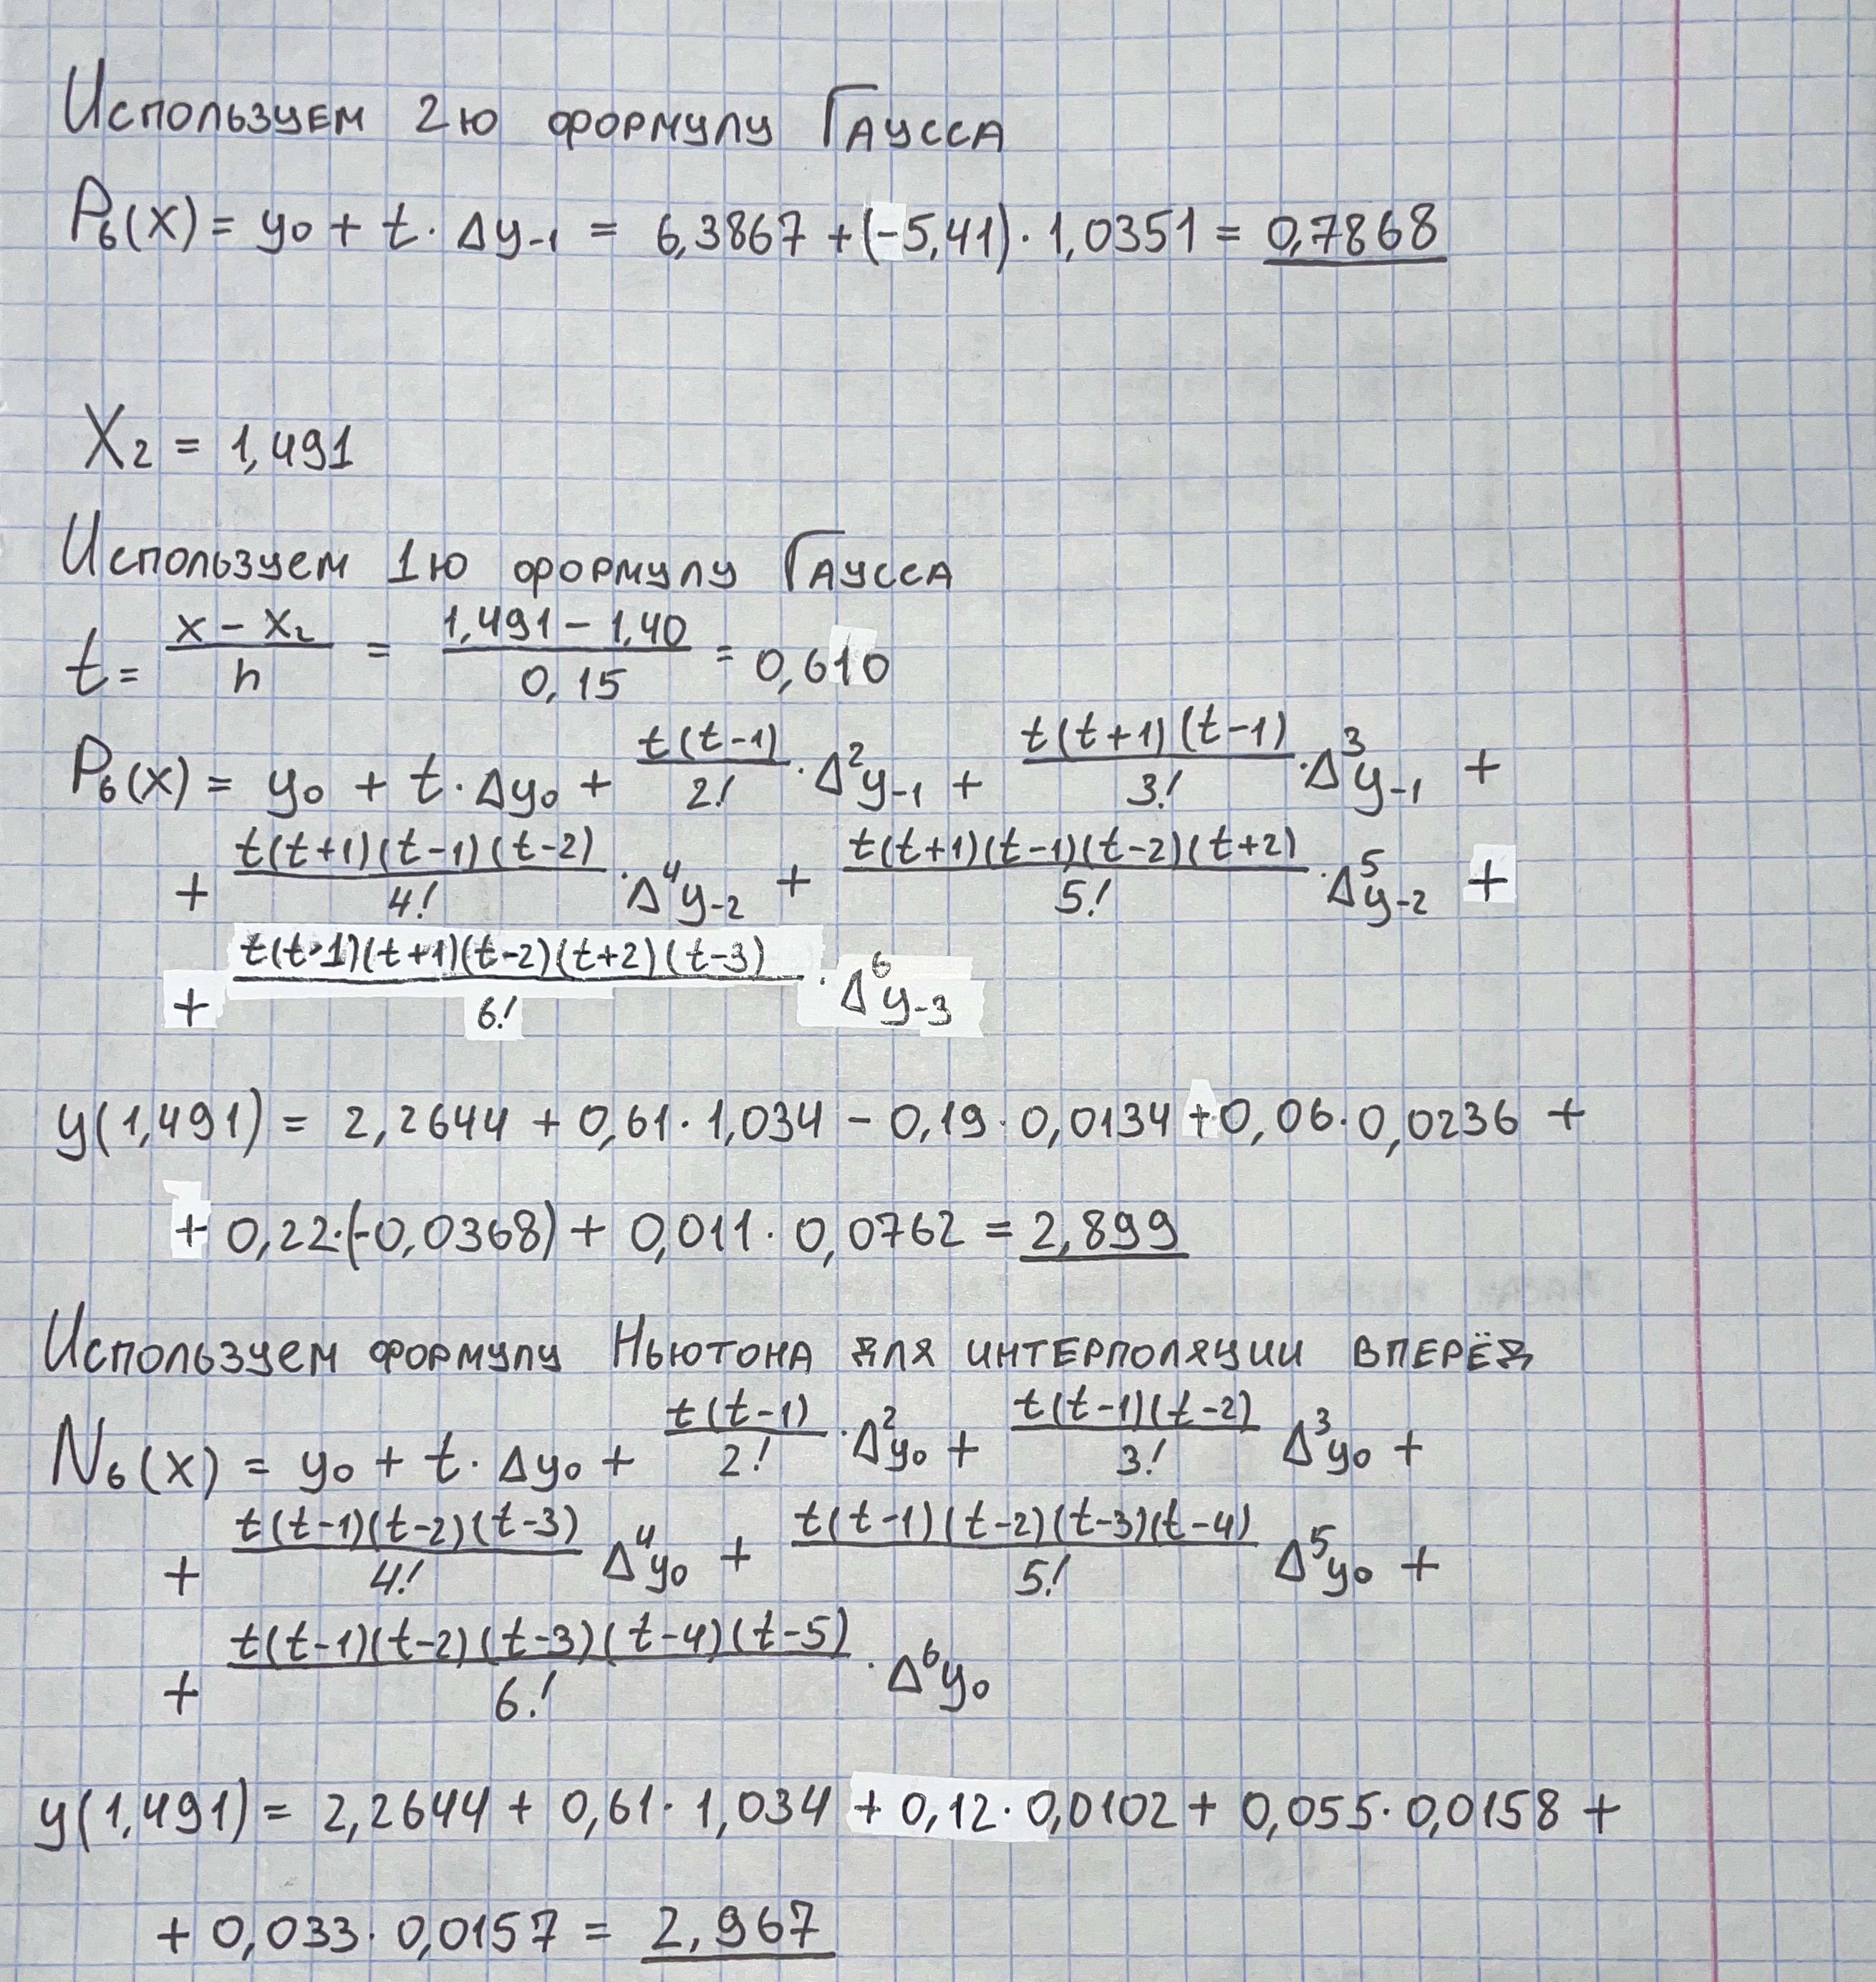 Используем 2ю формулу Гаусса
P₆(x) = y₀ + t · Δy₋₁ = 6,3867 + (-5,41) · 1,0351 = 0,7868
X₂ = 1,491
Используем 1ю формулу Гаусса
t = (x - x₂)/h = (1,491 - 1,40)/0,15 = 0,610
P₆(x) = y₀ + t · Δy₀ + t(t-1)/2! · Δ²y₋₁ + t(t+1)(t-1)/3! · Δ³y₋₁ +
+ t(t+1)(t-1)(t-2)/4! · Δ⁴y₋₂ + t(t+1)(t-1)(t-2)(t+2)/5! · Δ⁵y₋₂ +
+ t(t-1)(t+1)(t-2)(t+2)(t-3)/6! · Δ⁶y₋₃
y(1,491) = 2,2644 + 0,61 · 1,034 - 0,19 · 0,0134 + 0,06 · 0,0236 +
+ 0,22 · (-0,0368) + 0,011 · 0,0762 = 2,899
Используем формулу Ньютона для интерполяции вперёд
N₆(x) = y₀ + t · Δy₀ + t(t-1)/2! · Δ²y₀ + t(t-1)(t-2)/3! Δ³y₀ +
+ t(t-1)(t-2)(t-3)/4! Δ⁴y₀ + t(t-1)(t-2)(t-3)(t-4)/5! Δ⁵y₀ +
+ t(t-1)(t-2)(t-3)(t-4)(t-5)/6! · Δ⁶y₀
y(1,491) = 2,2644 + 0,61 · 1,034 + 0,12 · 0,0102 + 0,055 · 0,0158 +
+ 0,033 · 0,0157 = 2,967